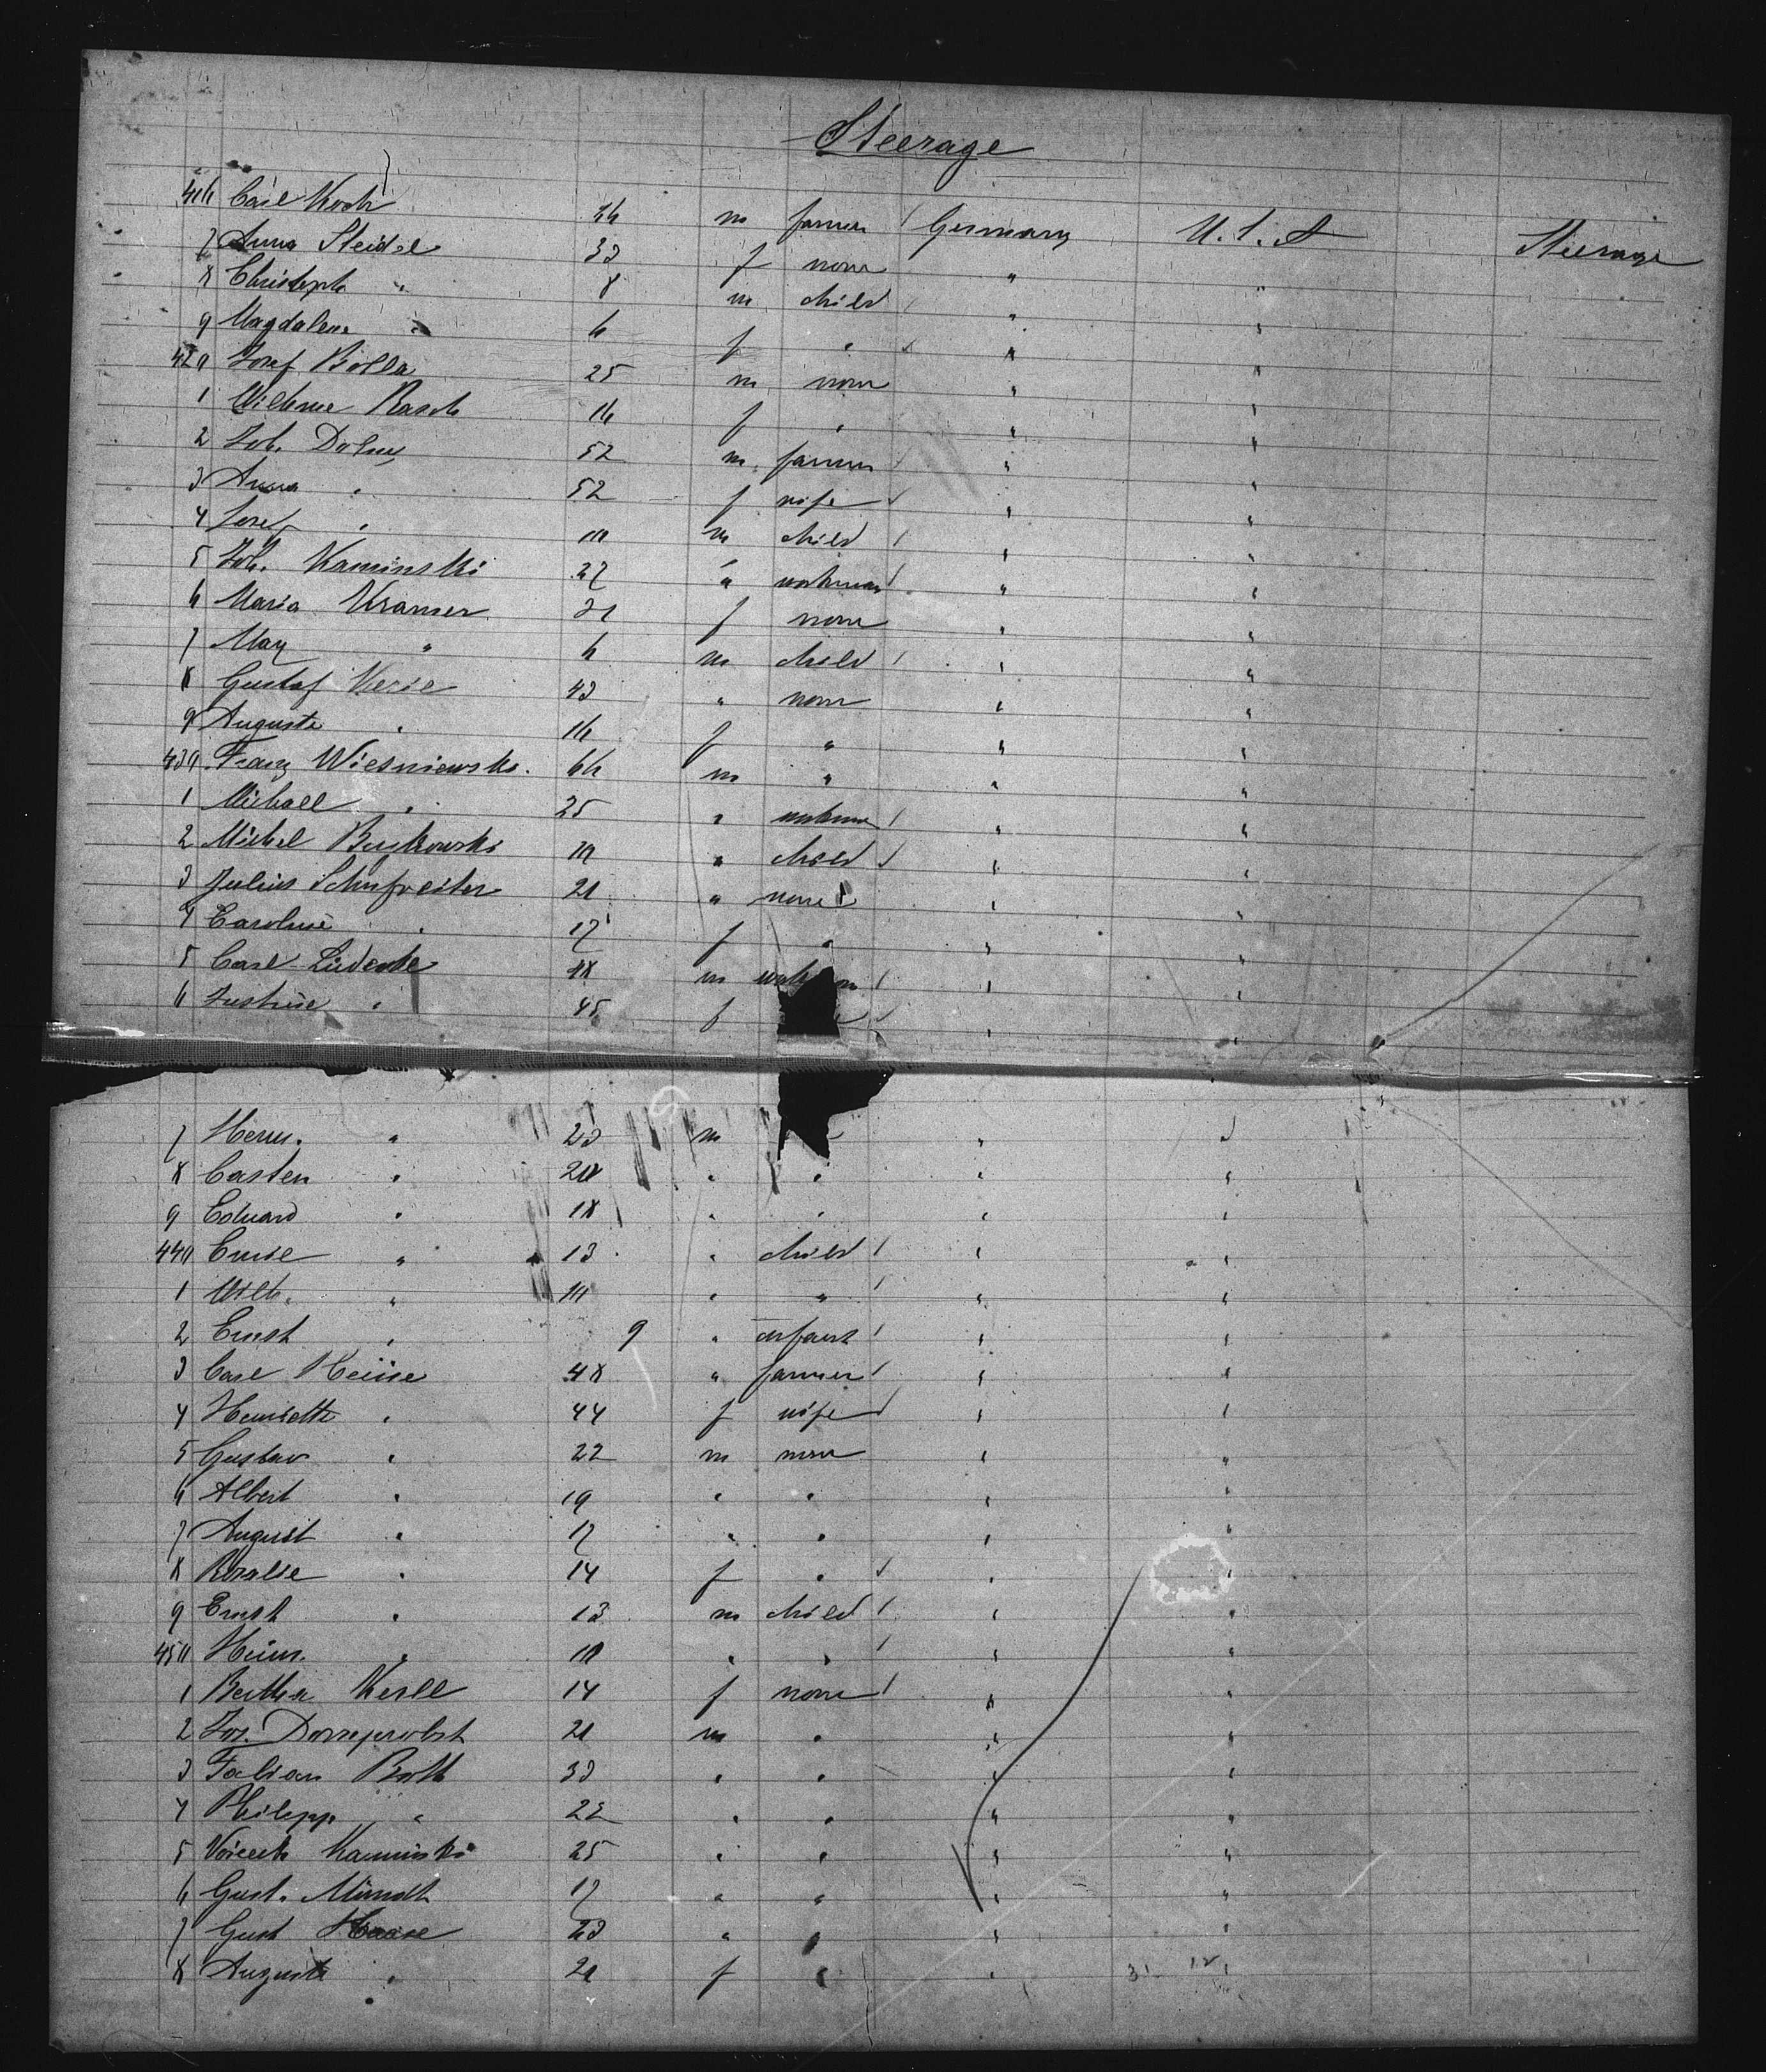 Steerage
416 Carl Koch 26 m farmer / Germany U. S. A Steerage
7 Anna Steidel 33 f none " "
8 Christoph " 8 m child / " "
9 Magdalena " 6 f " " "
420 Josef Bolla 25 m none " "
1 Rasch 16 f " " "
2 Joh. Dolny 52 m farmer / " "
3 Anna " 52 f wife / " "
4 Josef " 10 m child / " "
5 Joh. Kaminski 27 " workman / " "
6 Maria Kramer 21 f none " "
7 Max " 6 m child / " "
8 Gustaf 43 " none " "
9 Auguste " 16 f " " "
430 Franz Wiesniewski 66 m " " "
1 Michael " 25 " workman / " "
2 Michel 10 " child / " "
3 Julius 20 " none / " "
4 Caroline " 17 f " " "
5 Carl Lüdecke 48 m / " "
6 Justine " 45 f " "
7 Herm. " 23 m " "
8 Casten " 20 " " " "
9 Eduard " 18 " " " "
440 Emil " 13 " child / " "
1 Wilh. " 10 " " / " "
2 Ernst " 9 " infant / " "
3 Carl Heise 48 " farmer / " "
4 Henriette " 44 f wife / " "
5 Gustav " 22 m none " "
6 Albert " 19 " " " "
7 August " 17 " " " "
8 Rosalie " 14 f " / " "
9 Ernst " 13 m child / " "
450 Heinr. " 10 " " / " "
1 Bertha Kerll 14 f none / " "
2 Jos. Dornprobst 20 m " " "
3 Fabian Roth 33 " " " "
4 Philipp " 22 " " " "
5 Kaminski 25 " " " "
6 Gust. Mundt 17 " " " "
7 Gust Haase 23 " " " "
8 Auguste " 20 f " "